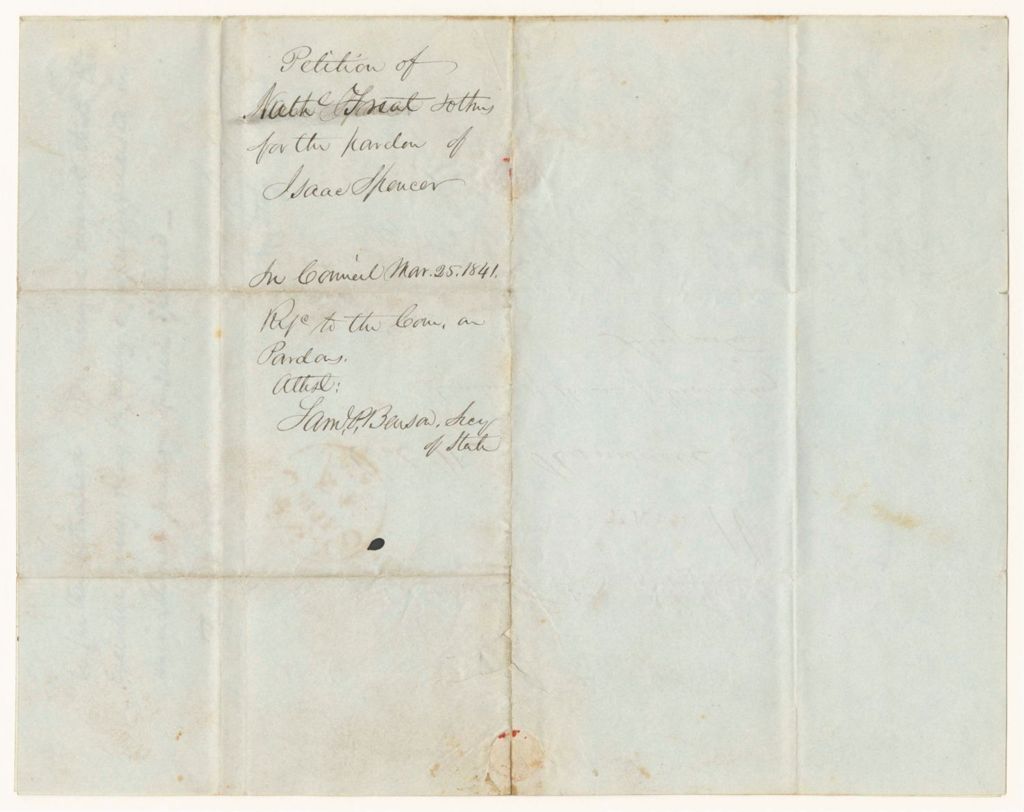 Petition of
Nathl & others
for the pardon of
Isaac Spencer
In Council Mar. 25. 1841.
Refd to the Com. on
Pardons.
Attest:
Saml P. Benson, Secy
of State